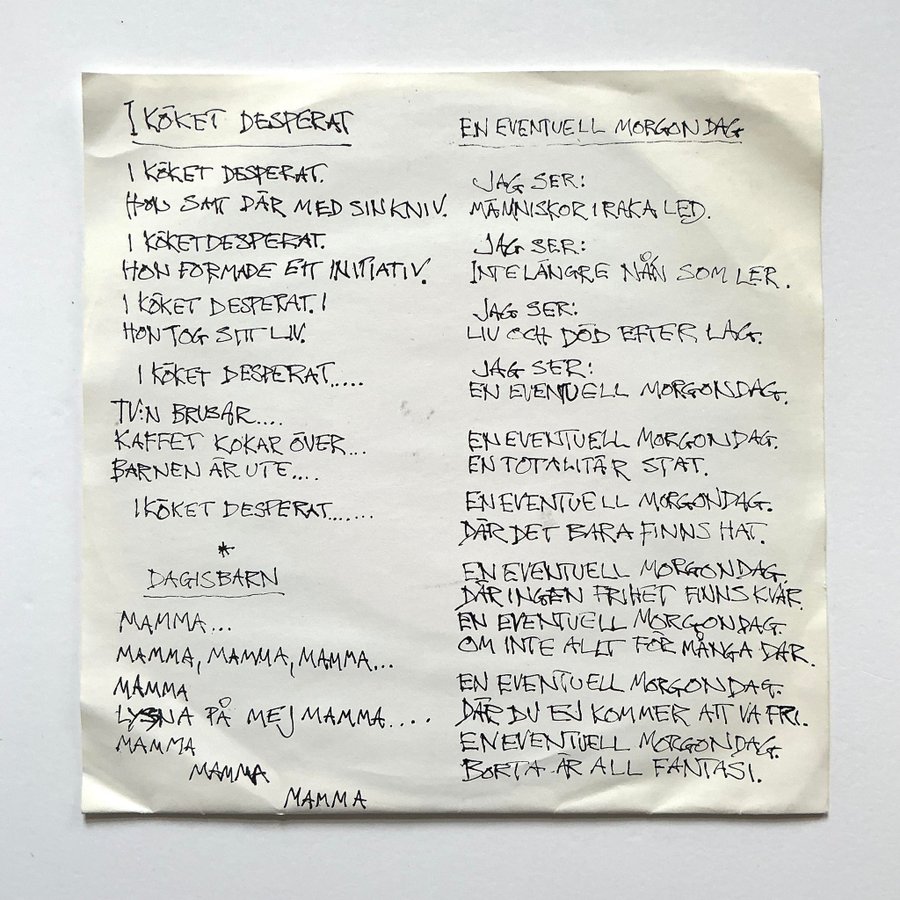 I KÖKET DESPERAT
I KÖKET DESPERAT.
HON SATT DÄR MED SIN KNIV.
I KÖKET DESPERAT.
HON FORMADE ETT INITIATIV.
I KÖKET DESPERAT. I
HON TOG SITT LIV.
I KÖKET DESPERAT.....
TV:N BRUSAR....
KAFFET KOKAR ÖVER...
BARNEN ÄR UTE....
I KÖKET DESPERAT.......
*
DAGISBARN
MAMMA...
MAMMA, MAMMA, MAMMA...
MAMMA
LYSSNA PÅ MEJ MAMMA....
MAMMA
MAMMA
MAMMA
EN EVENTUELL MORGONDAG
JAG SER:
MÄNNISKOR I RAKA LED.
JAG SER:
INTE LÄNGRE NÅN SOM LER.
JAG SER:
LIV OCH DÖD EFTER LAG.
JAG SER:
EN EVENTUELL MORGONSDAG.
EN EVENTUELL MORGONDAG.
EN TOTALITÄR STAT.
EN EVENTUELL MORGONDAG.
DÄR DET BARA FINNS HAT.
EN EVENTUELL MORGONDAG.
DÄR INGEN FRIHET FINNS KVAR.
EN EVENTUELL MORGONDAG.
OM INTE ALLT FÖR MÅNGA DAR.
EN EVENTUELL MORGONDAG.
DÄR DU EJ KOMMER ATT VA FRI.
EN EVENTUELL MORGONDAG.
BORTA ÄR ALL FANTASI.